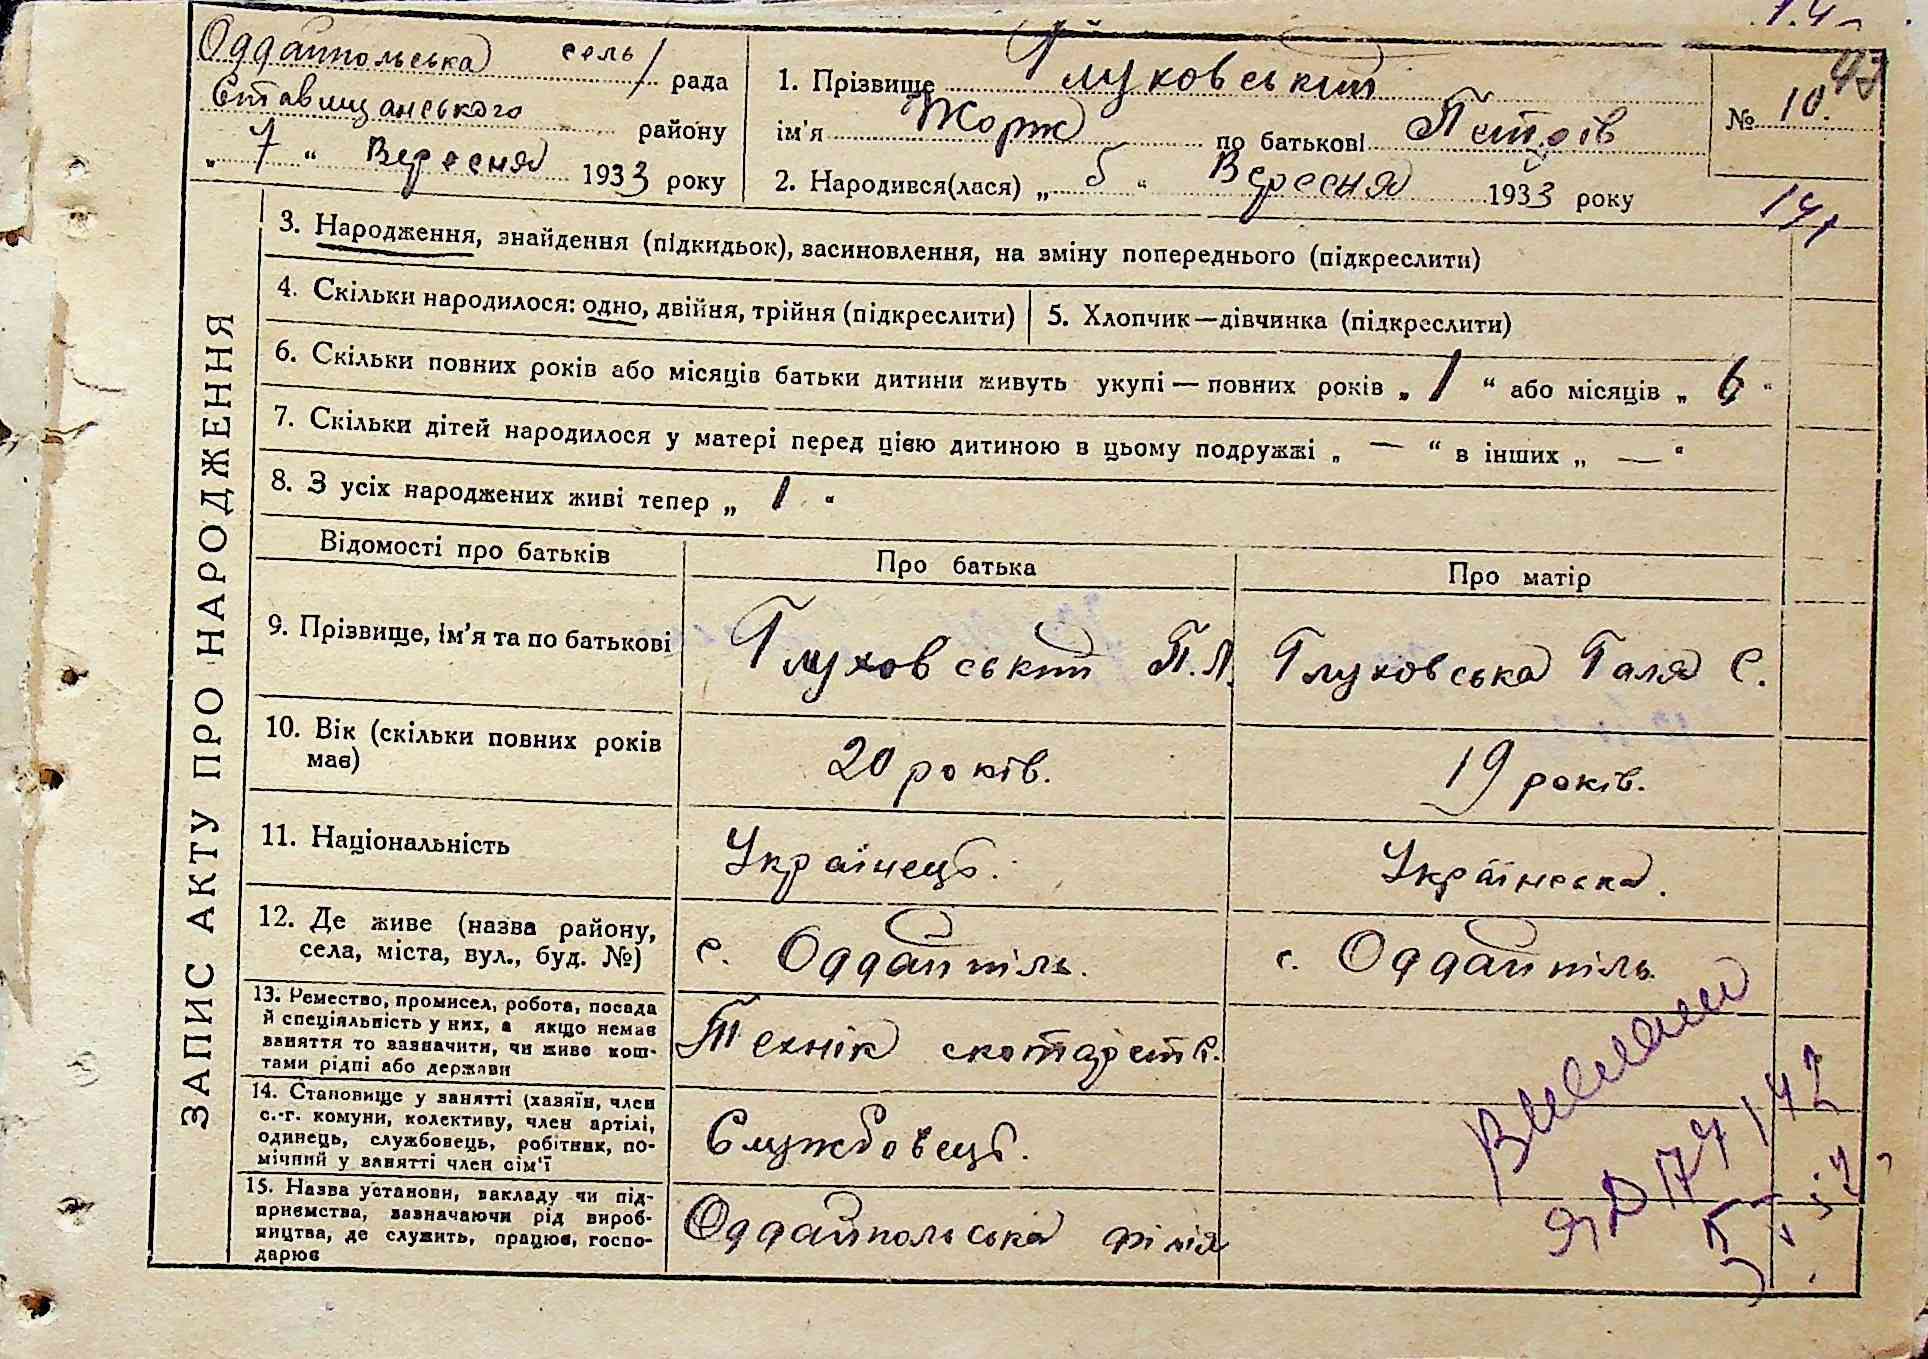 Оддайпольська сель/ рада
Ставищанського району
„ 7 “ Вересня 1933 року
1. Прізвище Глуховський
ім'я Жорж по батькові Петрів
2. Народився(лася) „ 5 “ Вересня 1933 року
№ 10.
93
ЗАПИС АКТУ ПРО НАРОДЖЕННЯ
3. Народження, знайдення (підкидьок), васиновлення, на зміну попереднього (підкреслити)
4. Скільки народилося: одно, двійня, трійня (підкреслити)
5. Хлопчик—дівчинка (підкреслити)
6. Скільки повних років або місяців батьки дитини живуть укупі — повних років „ 1 “ або місяців „ 6 “
7. Скільки дітей народилося у матері перед цією дитиною в цьому подружжі „ — “ в інших „ — “
8. З усіх народжених живі тепер „ 1 “
Відомості про батьків
Про батька
Про матір
9. Прізвище, ім'я та по батькові
Глуховський П.Л.
Глуховська Галя С.
10. Вік (скільки повних років
має)
20 років.
19 років.
11. Національність
Українець.
Українска.
12. Де живе (назва району,
села, міста, вул., буд. №)
с. Оддайпіль.
с. Оддайпіль
13. Ремество, промисел, робота, посада
й спеціяльність у них, а якщо немає
заняття то зазначити, чи живе кош-
тами рідні або держави
Технік скотарств.
14. Становище у занятті (хазяїн, член
с.-г. комуни, колективу, член артілі,
одинець, службовець, робітник, по-
мічний у занятті член сім'ї
Службовець.
15. Назва установи, закладу чи під-
приємства, зазначаючи рід вироб-
ництва, де служить, працює, госпо-
дарює
Оддайпольська філія